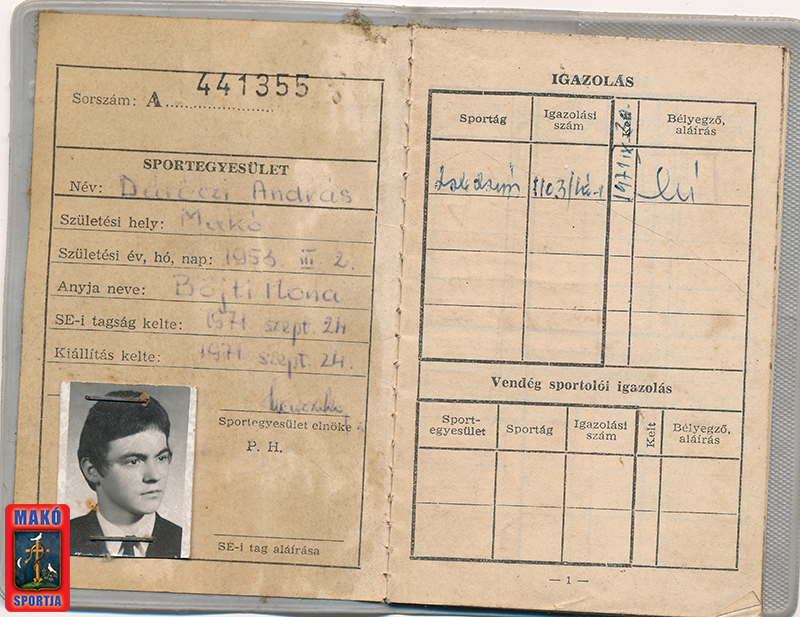 441355
Sorszám: A
SPORTEGYESÜLET
Név: Daróczi András
Születési hely: Makó
Születési év, hó, nap: 1953. III. 2.
Anyja neve: Bojti Ilona
SE-i tagság kelte: 1971. szept. 24
Kiállítás kelte: 1971. szept. 24.
Sportegyesület elnöke
P. H.
SE-i tag aláírása
MAKÓ
SPORTJA
IGAZOLÁS
Sportág
Igazolási szám
Kelt
Bélyegző, aláírás
Vendég sportolói igazolás
Sport-
egyesület
Sportág
Igazolási szám
Kelt
Bélyegző, aláírás
— 1 —